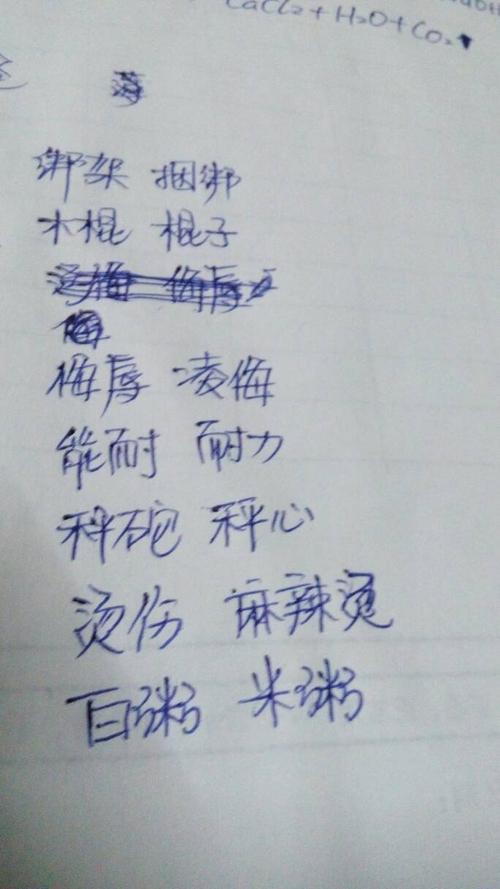 CaCl₂+H₂O+CO₂
绑架 捆绑
木棍 棍子
侮辱 凌侮
能耐 耐力
秤砣 秤心
烫伤 麻辣烫
白粥 米粥